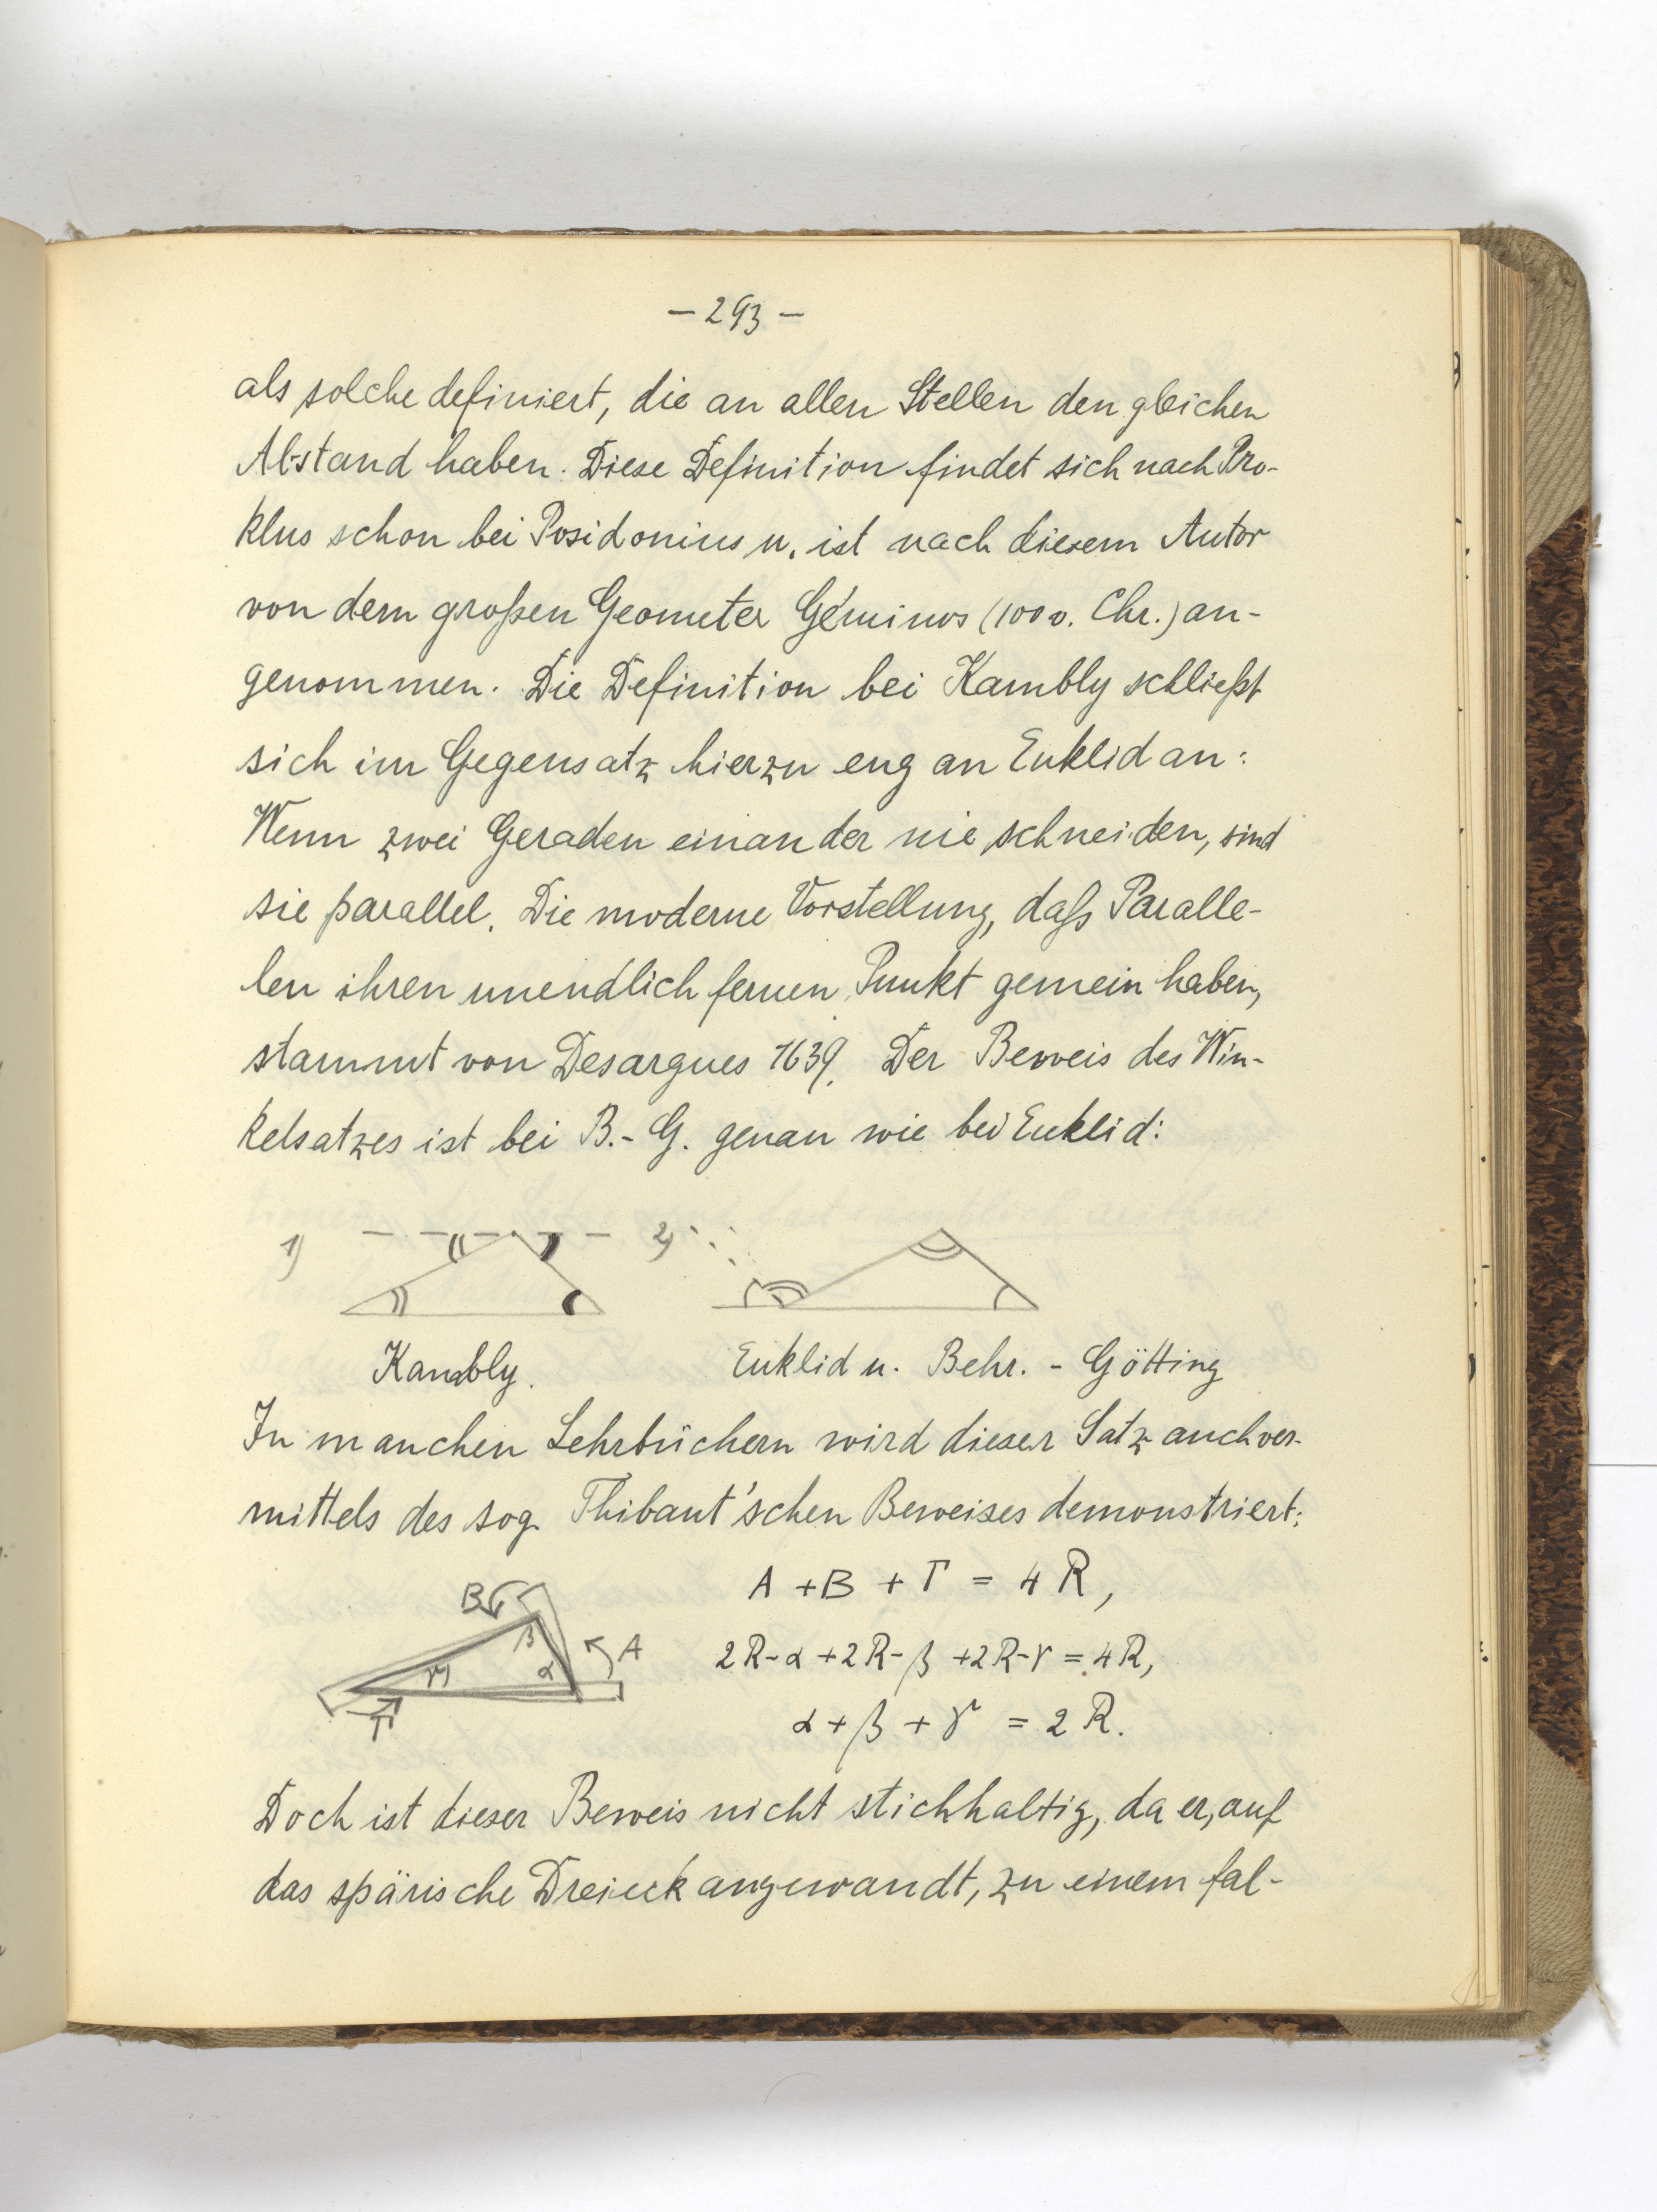 – 293 –
als solche definiert, die an allen Stellen den gleichen
Abstand haben. Diese Definition findet sich nach Pro-
klus schon bei Posidonius u. ist nach diesem Autor
von dem großen Geometer Géminos (100 v. Chr.) an-
genommen. Die Definition bei Kambly schließt
sich im Gegensatz hierzu eng an Euklid an:
Wenn zwei Geraden einander nie schneiden, sind
sie parallel. Die moderne Vorstellung, daß Paralle-
len ihren unendlich fernen Punkt gemein haben,
stammt von Desargues 1639. Der Beweis des Win-
kelsatzes ist bei B.-G. genau wie bei Euklid:
1) 2)
Kambly. Euklid u. Behr. - Götting
In manchen Lehrbüchern wird dieser Satz auch ver-
mittels des sog. Thibaut'schen Beweises demonstriert:
A + B + Γ = 4 R,
B β A γ α Γ
2R-α+2R-β+2R-γ = 4R,
α + β + γ = 2 R.
Doch ist dieser Beweis nicht stichhaltig, da er, auf
das spärische Dreieck angewandt, zu einem fal-